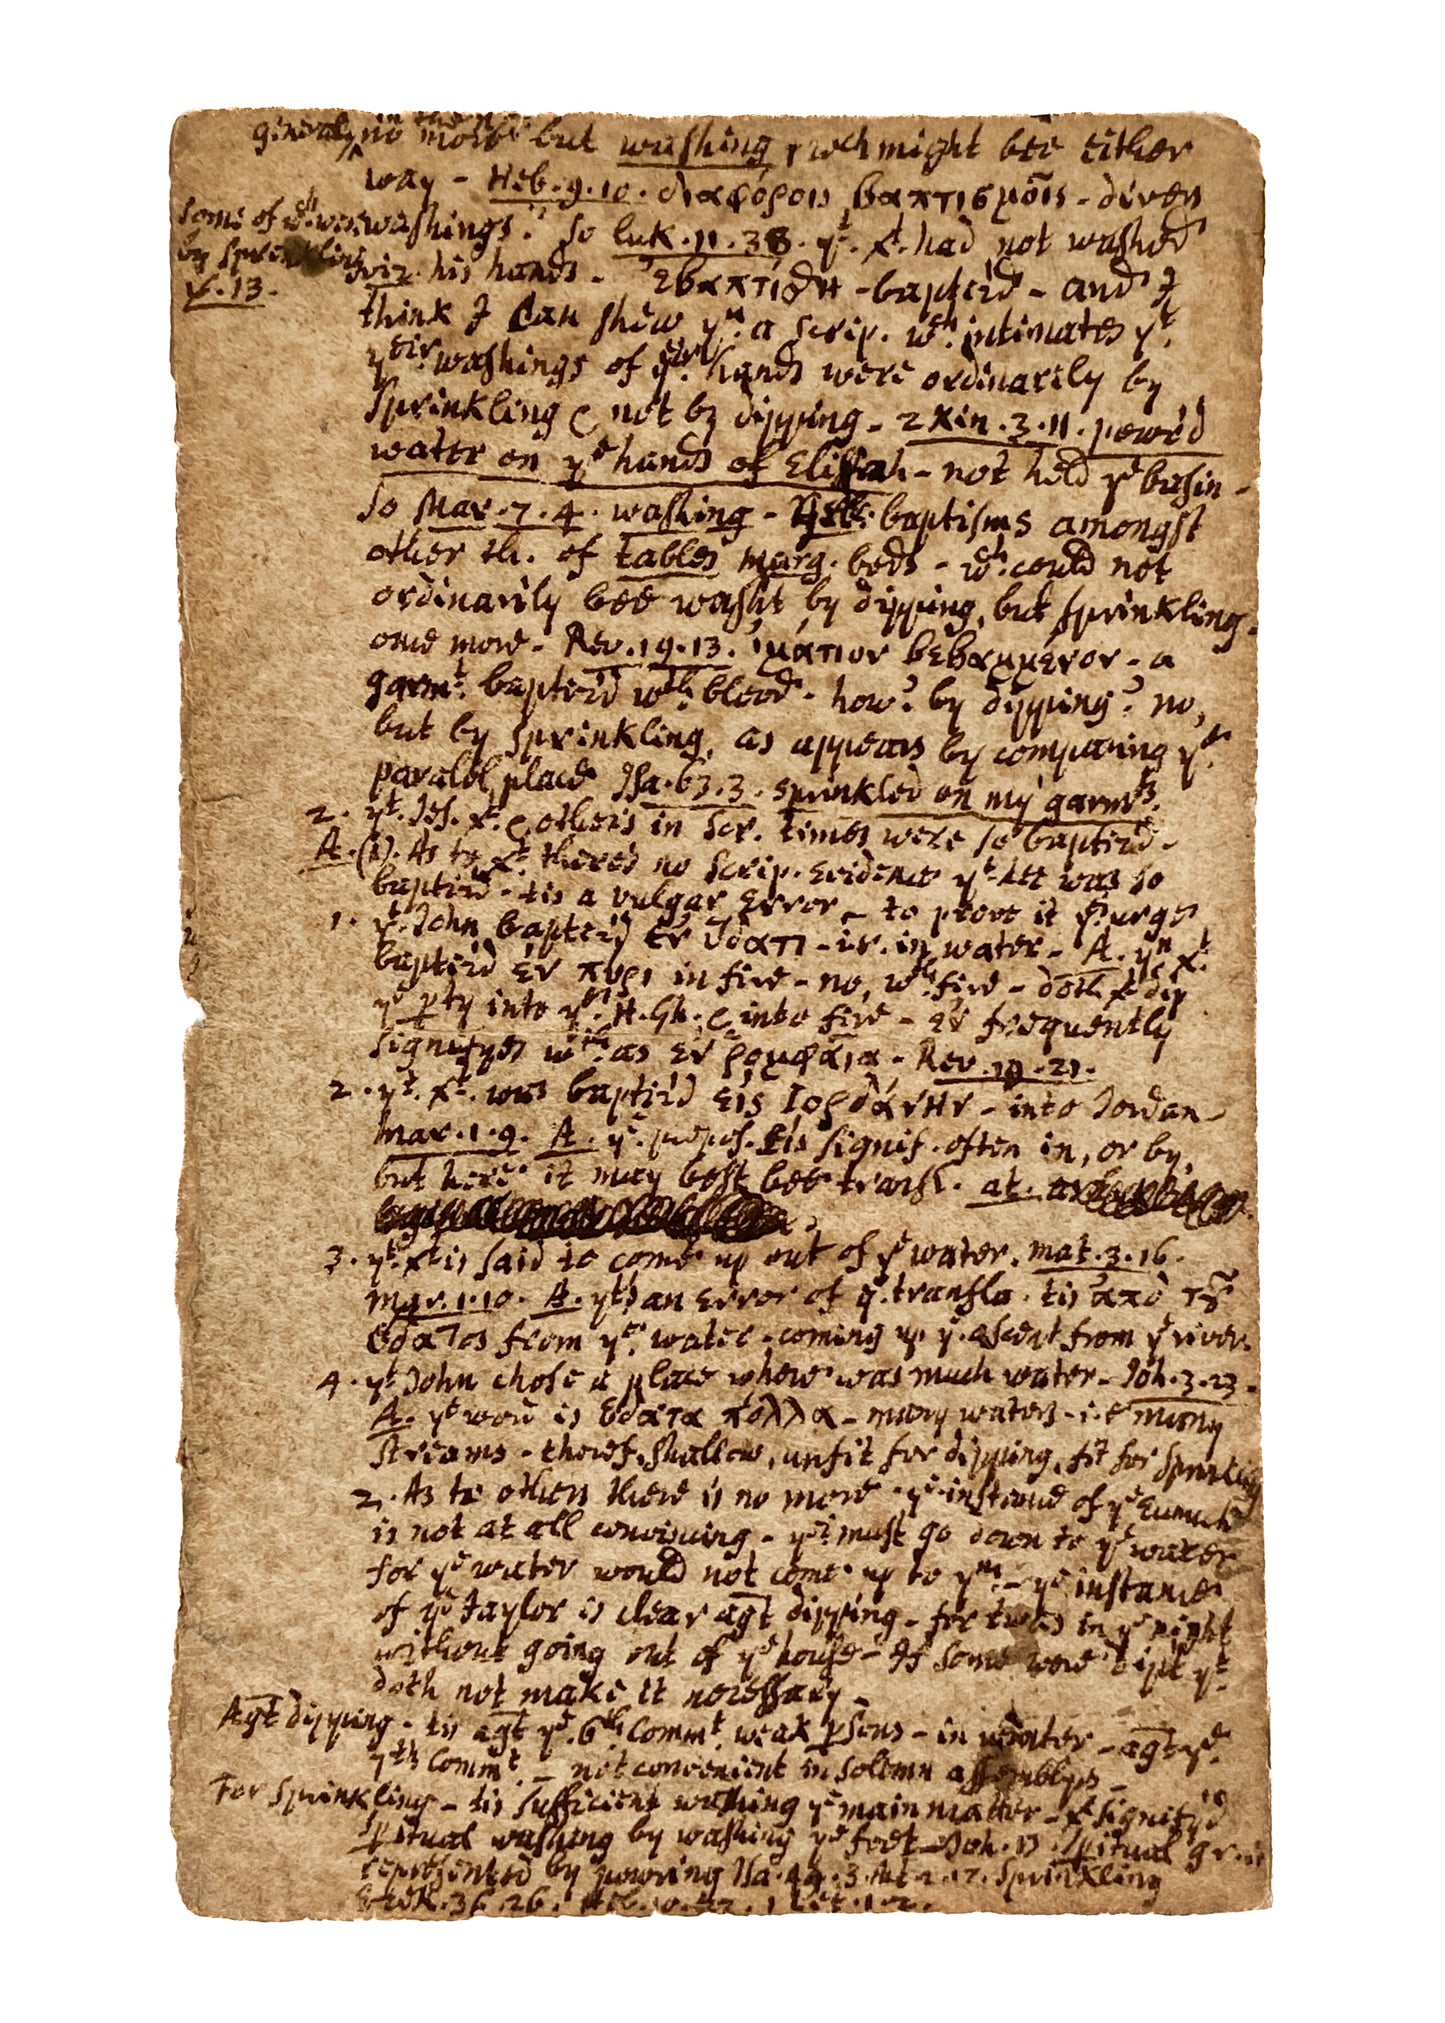 generaly no more but washing, wch might bee either
way - Heb. 9. 10. διαφόροις βαπτισμοῖς - divers
some of wch. were washings. So Luk. 11. 38. yt. Xt. had not washed
by sprinkling viz. his hands - ἐβαπτίσθη - baptiz'd - and I
v. 13. think I can shew ym. a scrip. wch. intimates yt.
yeir washings of yeir hands were ordinarily by
sprinkling & not by dipping - 2 Kin. 3. 11. powr'd
water on ye hands of Elijah - not held ye basin -
So Mar. 7. 4. washing - baptisms amongst
other th. of tables marg. beds - wch. could not
ordinarily bee washt by dipping, but sprinkling.
one more - Rev. 19. 13. ἱμάτιον βεβαμμενον - a
garmt. baptiz'd wth. blood - how? by dipping? no,
but by sprinkling, as appears by comparing ye.
paralel place Isa. 63. 3. sprinkled on my garmts.
2. yt. Jes. Xt. & others in Scr. times were so baptiz'd -
A. (1). As to Xt. there's no scrip. evidence yt. hee was so
baptiz'd - tis a vulgar error - to prove it yy. urge
1. yt. John baptiz'd ἐν ὕδατι - i.e. in water - A. yn Xt.
baptiz'd ἐν πυρι in fire - no, wth. fire - doth Xt dip
ye pty into ye. H. Gh. & into fire - ἐν frequently
signifyes wth. as ἐν ῥομφαία - Rev. 19. 21.
2. yt. Xt. was baptiz'd εἰς Ιορδάνην - into Jordan -
Mar. 1. 9. A. ye. prepos. εἰς signif. often in, or by,
but here it may best bee transl. at.
3. yt. Xt is said to come up out of ye water. Mat. 3. 16.
Mar. 1. 10. A. yts an error of ye. transla. tis ἀπὸ τȣ͂
ὕδατος from ye. water - coming up ye. ascent from ye river.
4. yt John chose a place where was much water - Joh. 3. 23 -
A. ye word is ὕδατα πολλα - many waters - i.e many
streams - theref. shallow, unfit for dipping, fit for sprinkling
2. As to others there is no more - ye instance of ye Eunuch
is not at all convincing - yey must go down to ye water
for ye water would not come up to ym. - ye instance
of ye Jaylor is clear agt dipping - for twas in ye night
without going out of ye house - If some were dipt yt
doth not make it necessary -
Agt dipping - tis agt ye. 6th Commt. weak psons - in water - agt ye.
7th Commt. - not convenient in solemn assemblyes -
For sprinkling - tis sufficient washing ye main matter - Xt signify'd
spitual washing by washing ye feet - Joh. 13. Spitual
represented by powring Isa. 44. 3. Act 2. 17. Sprinkling
Ezek. 36. 26. Heb. 10. 22. 1 Pet. 1. 2.